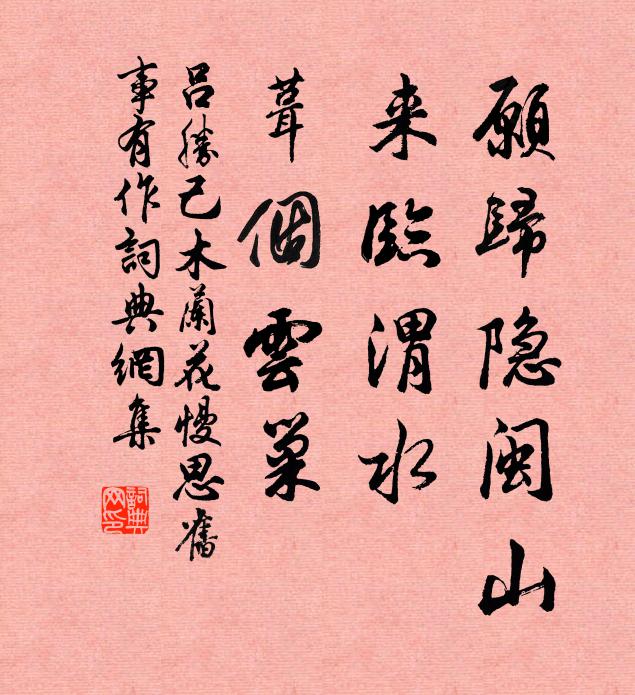 願歸隐闽山
来臨渭水
葺個雲巢
吕勝己木蘭花慢思舊
事有作詞典網集
詞典网印